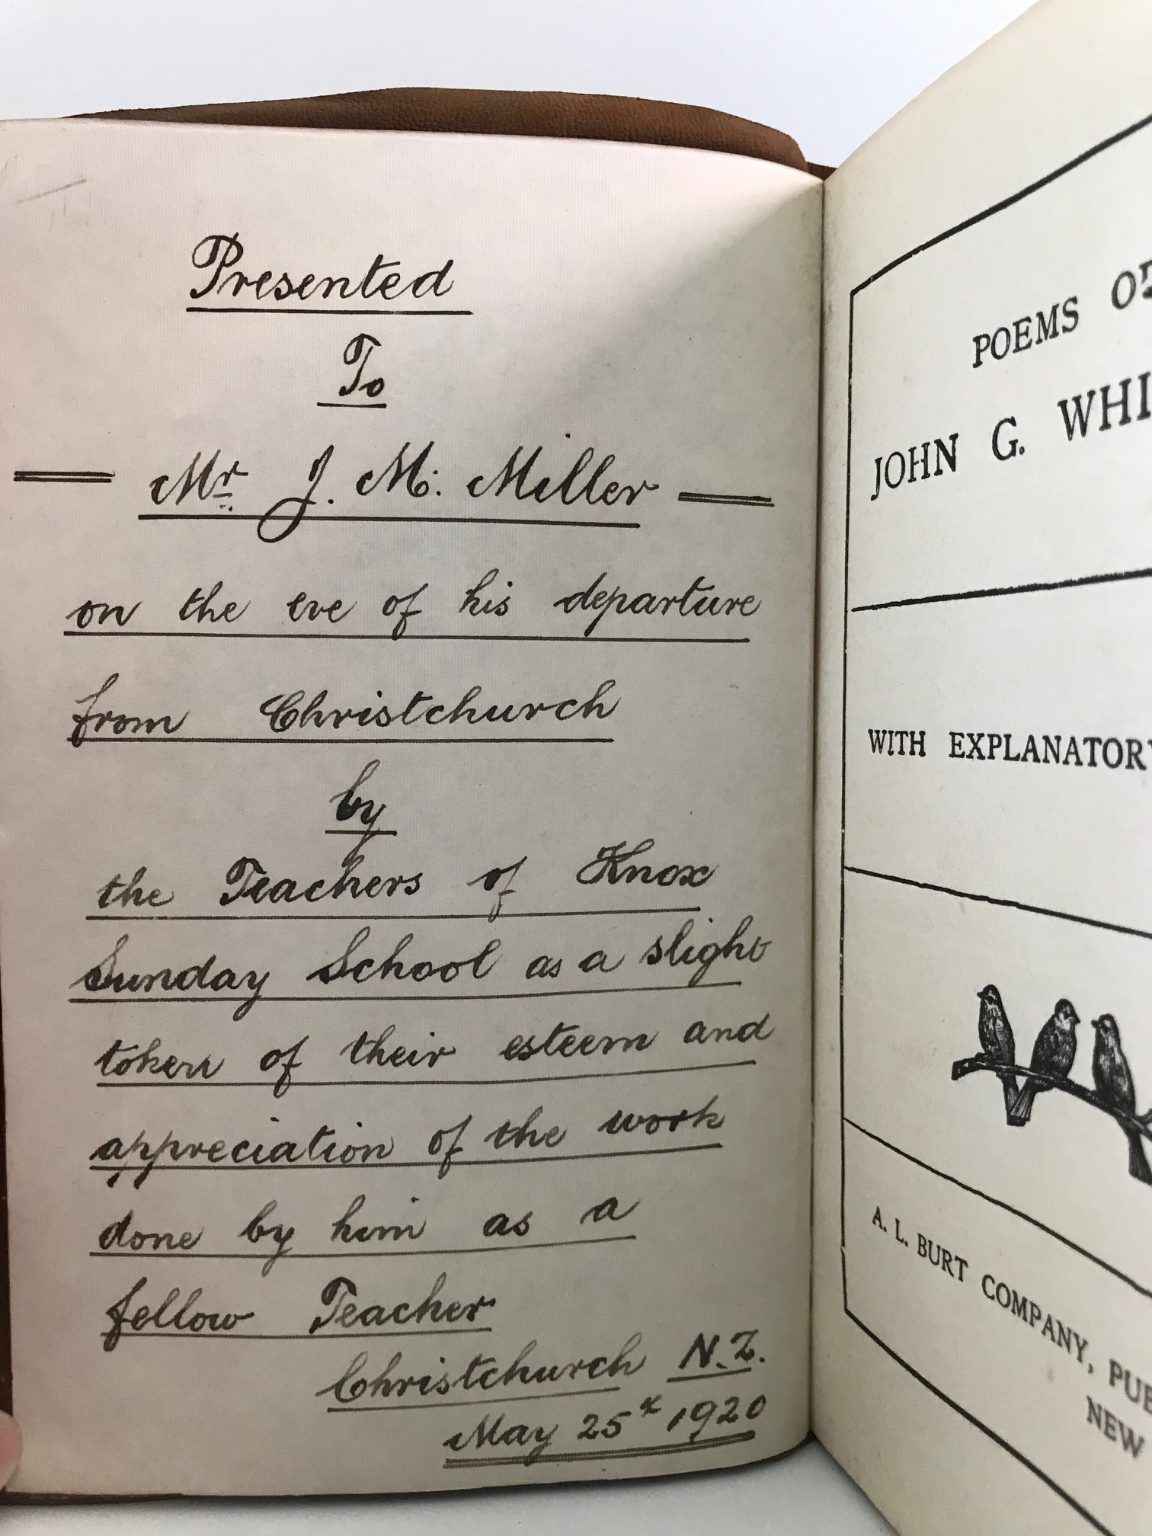 Presented
To
Mr J. M. Miller
on the eve of his departure
from Christchurch
by
the Teachers of Knox
Sunday School as a slight
token of their esteem and
appreciation of the work
done by him as a
fellow Teacher
Christchurch N.Z.
May 25th 1920
POEMS OF
JOHN G. WHI
WITH EXPLANATORY
A. L. BURT COMPANY, PUB
NEW